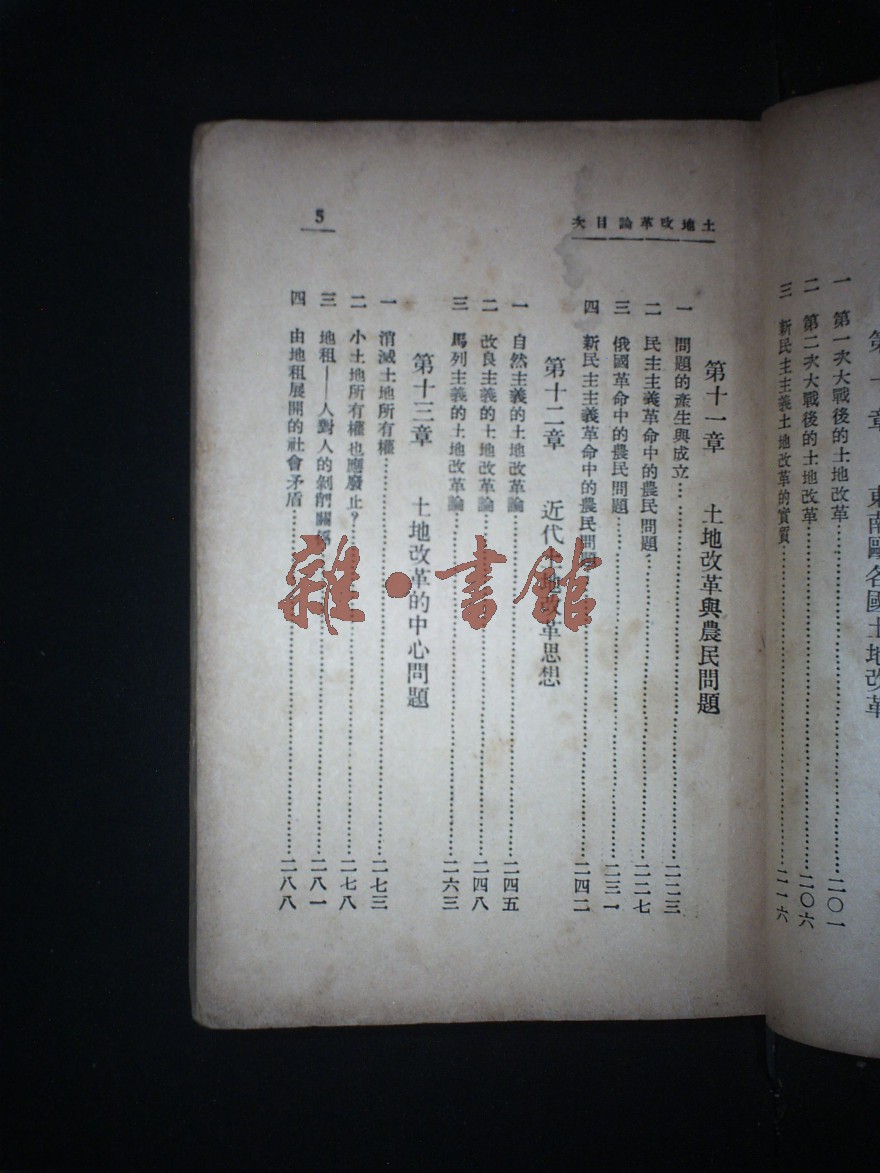 第十章　東南歐各國土地改革
一　第一次大戰後的土地改革……二〇一
二　第二次大戰後的土地改革……二〇六
三　新民主主義土地改革的實質……二一六
土地改革論目次
5
第十一章　土地改革與農民問題
一　問題的產生與成立……二二三
二　民主主義革命中的農民問題……二二七
三　俄國革命中的農民問題……二三一
四　新民主主義革命中的農民問題……二四二
第十二章　近代土地改革思想
一　自然主義的土地改革論……二四五
二　改良主義的土地改革論……二四八
三　馬列主義的土地改革論……二六三
第十三章　土地改革的中心問題
一　消滅土地所有權……二七三
二　小土地所有權也應廢止？……二七八
三　地租——人對人的剝削關係……二八一
四　由地租展開的社會矛盾……二八八
雜·書館